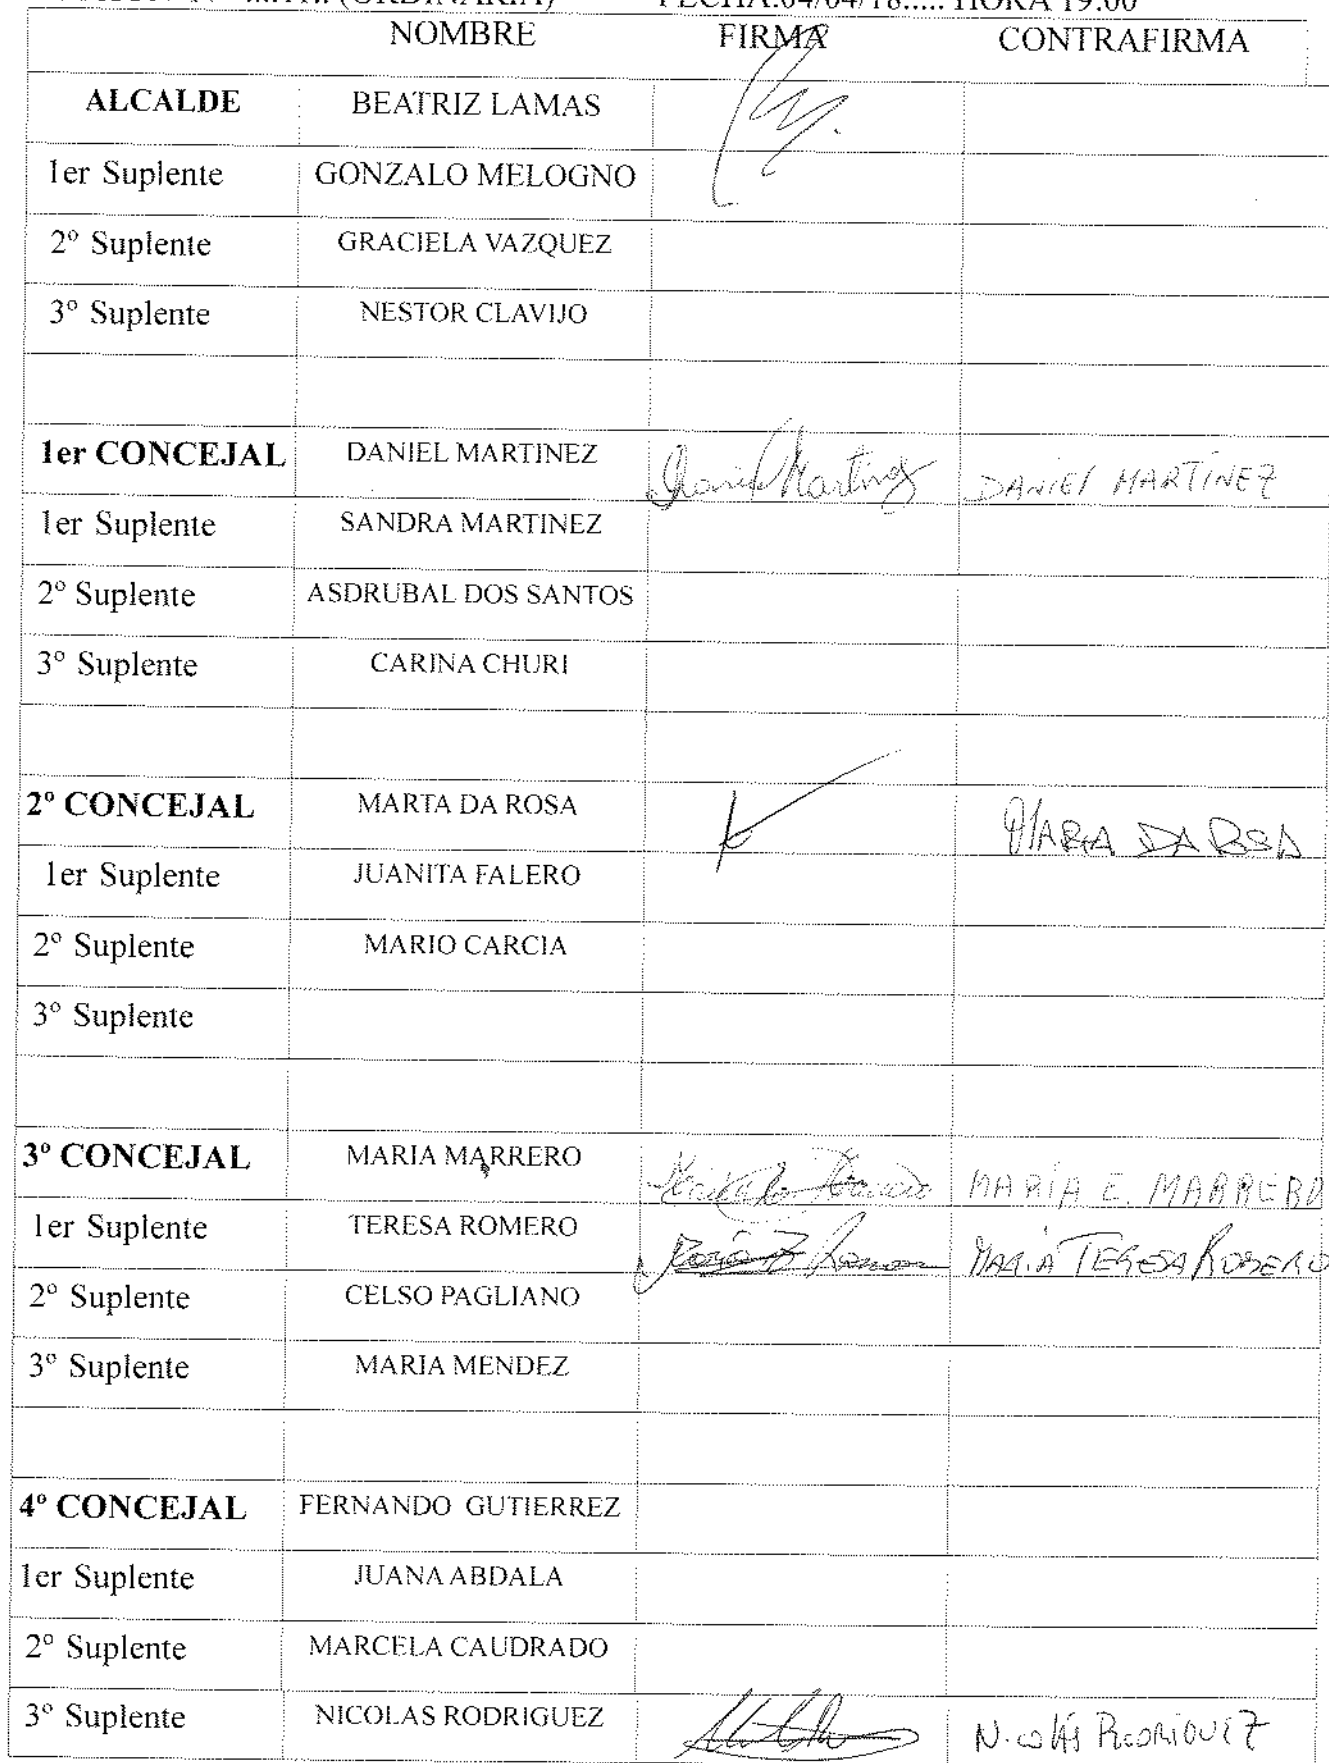 (ORDINARIA) FECHA:04/04/18..... HORA 19:00
NOMBRE FIRMA CONTRAFIRMA
ALCALDE BEATRIZ LAMAS
1er Suplente GONZALO MELOGNO
2º Suplente GRACIELA VAZQUEZ
3º Suplente NESTOR CLAVIJO
1er CONCEJAL DANIEL MARTINEZ Daniel Martinez DANIEL MARTÍNEZ
1er Suplente SANDRA MARTINEZ
2º Suplente ASDRUBAL DOS SANTOS
3º Suplente CARINA CHURI
2º CONCEJAL MARTA DA ROSA MARTA DA ROSA
1er Suplente JUANITA FALERO
2º Suplente MARIO CARCIA
3º Suplente
3º CONCEJAL MARIA MARRERO MARÍA E. MARRERO
1er Suplente TERESA ROMERO MARIA TERESA ROMERO
2º Suplente CELSO PAGLIANO
3º Suplente MARIA MENDEZ
4º CONCEJAL FERNANDO GUTIERREZ
1er Suplente JUANA ABDALA
2º Suplente MARCELA CAUDRADO
3º Suplente NICOLAS RODRIGUEZ NICOLÁS RODRIGUEZ